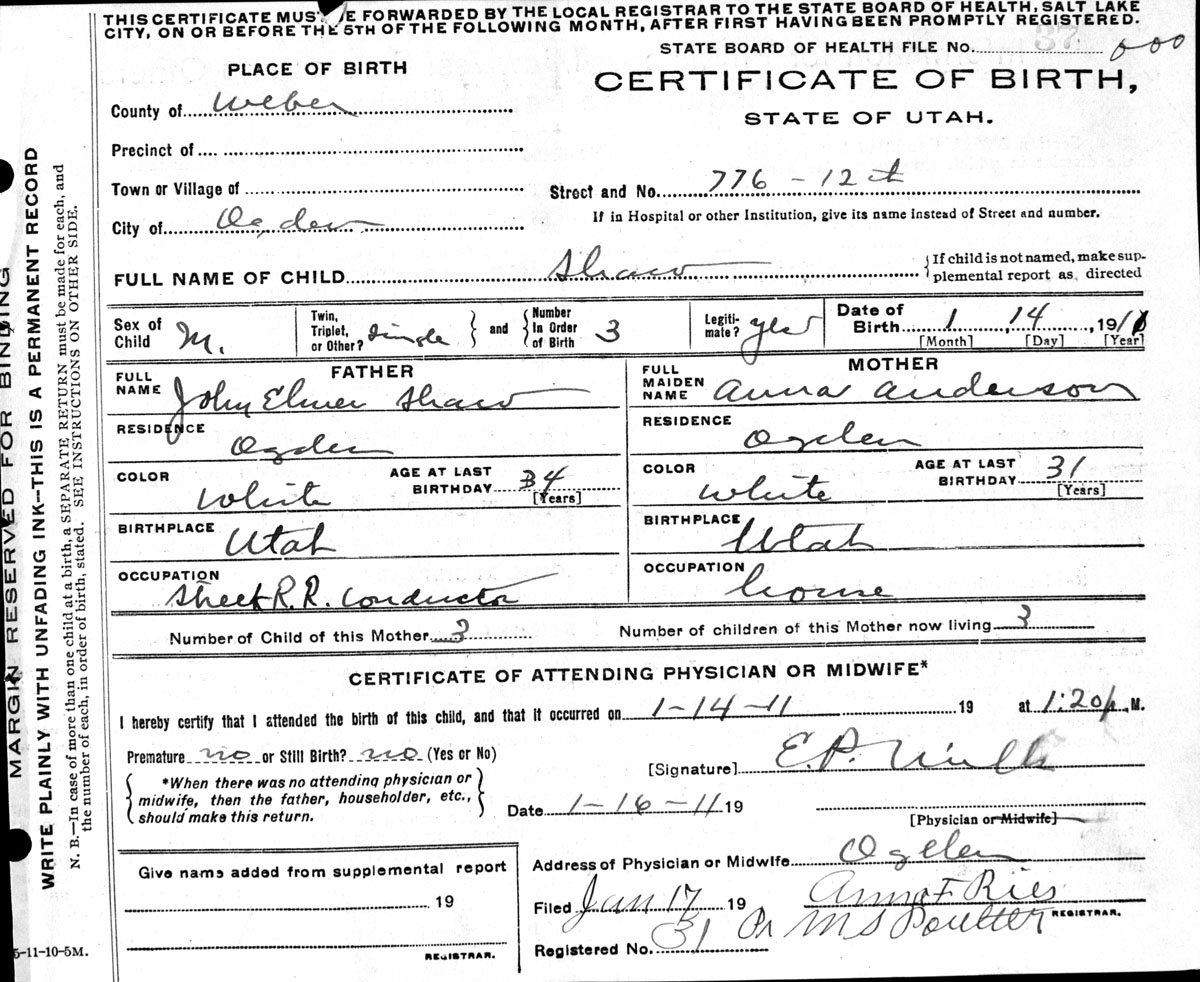 THIS CERTIFICATE MUST BE FORWARDED BY THE LOCAL REGISTRAR TO THE STATE BOARD OF HEALTH, SALT LAKE
CITY, ON OR BEFORE THE 5TH OF THE FOLLOWING MONTH, AFTER FIRST HAVING BEEN PROMPTLY REGISTERED.
STATE BOARD OF HEALTH FILE No.
PLACE OF BIRTH
CERTIFICATE OF BIRTH,
STATE OF UTAH.
County of Weber
Precinct of
Town or Village of
Street and No. 776 - 12th
City of Ogden
If in Hospital or other Institution, give its name instead of Street and number.
FULL NAME OF CHILD Shaw
If child is not named, make sup-
plemental report as directed
Sex of Child M.
Twin, Triplet, or Other? single and Number In Order of Birth 3
Legiti-mate? yes
Date of Birth 1, 14, 1911
[Month] [Day] [Year]
FATHER
FULL NAME John Elmer Shaw
RESIDENCE Ogden
COLOR White AGE AT LAST BIRTHDAY 34 [Years]
BIRTHPLACE Utah
OCCUPATION Street R.R. Conductor
MOTHER
FULL MAIDEN NAME Anna Anderson
RESIDENCE Ogden
COLOR White AGE AT LAST BIRTHDAY 31 [Years]
BIRTHPLACE Utah
OCCUPATION house
Number of Child of this Mother 3 Number of children of this Mother now living 3
CERTIFICATE OF ATTENDING PHYSICIAN OR MIDWIFE*
I hereby certify that I attended the birth of this child, and that it occurred on 1-14-11 19 at 1:20 p. M.
Premature no or Still Birth? no (Yes or No)
[Signature] E.P.
*When there was no attending physician or
midwife, then the father, householder, etc.,
should make this return.
Date 1-16-11 19
[Physician or Midwife]
Give name added from supplemental report
19
REGISTRAR.
Address of Physician or Midwife Ogden
Filed Jan 17 19 Anna F. Ries
Pr M S Poulter REGISTRAR.
Registered No. 31
MARGIN RESERVED FOR BINDING
WRITE PLAINLY WITH UNFADING INK--THIS IS A PERMANENT RECORD
N. B.--In case of more than one child at a birth, a SEPARATE RETURN must be made for each, and
the number of each, in order of birth, stated. SEE INSTRUCTIONS ON OTHER SIDE.
5-11-10-5M.